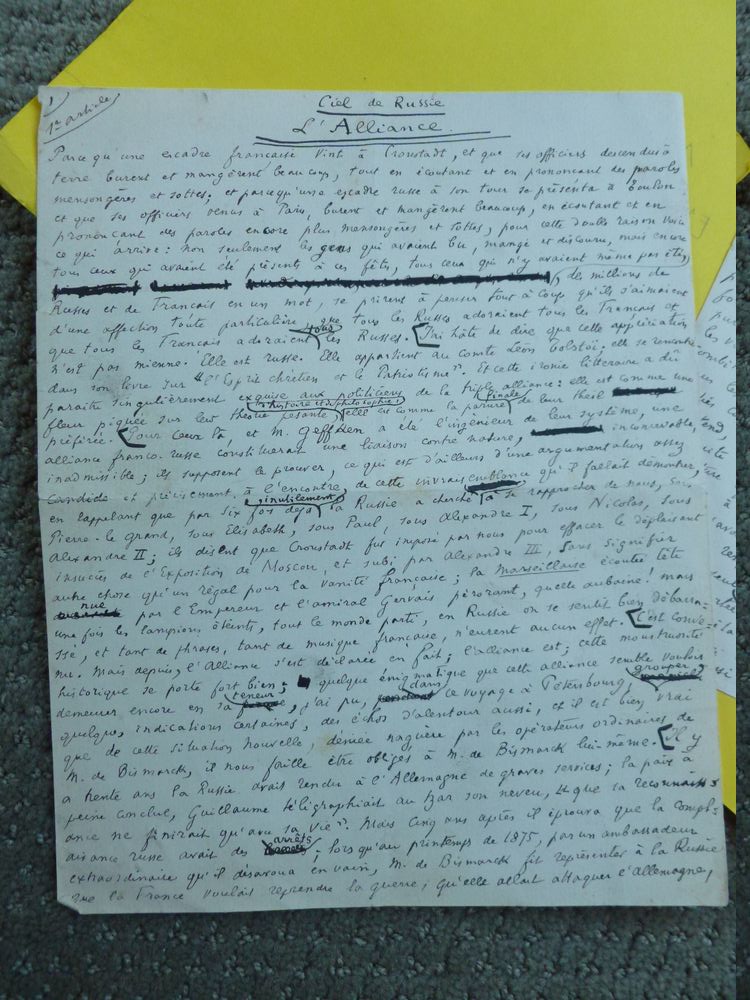 1.
1er article
Ciel de Russie
L'Alliance.
Parce qu'une escadre française vint à Cronstadt, et que ses officiers descendus à
terre burent et mangèrent beaucoup, tout en écoutant et en prononçant des paroles
mensongères et sottes; et parcequ'une escadre russe à son tour se présenta à Toulon
et que ses officiers venus à Paris, burent et mangèrent beaucoup, en écoutant et en
prononçant des paroles encore plus mensongères et sottes, pour cette double raison voici
ce qui arriva: non seulement les gens qui avaient bu, mangé et discouru, mais encore
tous ceux qui avaient été présents à ces fêtes, tous ceux qui n'y avaient même pas été,
de millions de
Russes et de Francais en un mot, se prirent à penser tout à coup qu'ils s'aimaient
d'une affection toute particulière que tous les Russes adoraient tous les Français et
que tous les Francais adoraient tous les Russes. J'ai hâte de dire que cette appréciation
n'est pas mienne. Elle est russe. Elle appartient au comte Léon Tolstoï, elle se rencontre
dans son livre sur "l'Esprit chrétien et le Patriotisme". Et cette ironie littéraire a dû
paraître singulièrement exquise aux politiciens de la triple alliance: elle est comme une
fleur piquée sur leur histoire et philosophie thèse pesante, elle est comme la parure finale de leur
préférée. Pour ceux là, et M. Geffken a été l'ingénieur de leur système, une
alliance franco-russe constituerait une liaison contre nature, inconcevable,
inadmissible; ils supposent le prouver, ce qui est d'ailleurs d'une argumentation assez
candide et précisément à l'encontre de cette invraisemblance qu'il fallait démontrer,
en rappelant que par six fois déjà inutilement la Russie a cherché à se rapprocher de nous, sous
Pierre-le grand, sous Elisabeth, sous Paul, sous Alexandre I, sous Nicolas, sous
Alexandre II; ils disent que Cronstadt fut imposé par nous pour effacer le déplaisant
insuccès de l'Exposition de Moscou, et subi par Alexandre III, sans signifier
autre chose qu'un régal pour la vanité française; la Marseillaise écoutée tête
nue par l'Empereur et l'amiral Gervais pérorant, quelle aubaine! mais
une fois les lampions éteints, tout le monde parti, en Russie on se sentit bien débarras-
sé, et tant de phrases, tant de musique française, n'eurent aucun effet. C'est conve-
nu. Mais depuis, l'Alliance s'est déclarée en fait; l'alliance est; cette monstruosité
historique se porte fort bien; quelque énigmatique que cette alliance semble vouloir
demeurer encore en sa teneur, j'ai pu, dans ce voyage à Pétersbourg, grouper
quelques indications certaines, des échos d'alentour aussi, et il est bien vrai
que de cette situation nouvelle, déniée naguère par les opérateurs ordinaires de
M. de Bismarck, il nous faille être obligés à M. de Bismarck lui-même. Il y
a trente ans la Russie avait rendu à l'Allemagne de graves services; la paix à
peine conclue, Guillaume télégraphiait au tzar son neveu, "que sa reconnaiss-
ance ne finirait qu'avec sa vie". Mais cinq ans après il éprouva que la compl-
aisance russe avait des arrêts; lorsqu'au printemps de 1875, par un ambassadeur
extraordinaire qu'il désavoua en vain, M. de Bismarck fit représenter à la Russie
que la France voulait reprendre la guerre; qu'elle allait attaquer l'Allemagne,